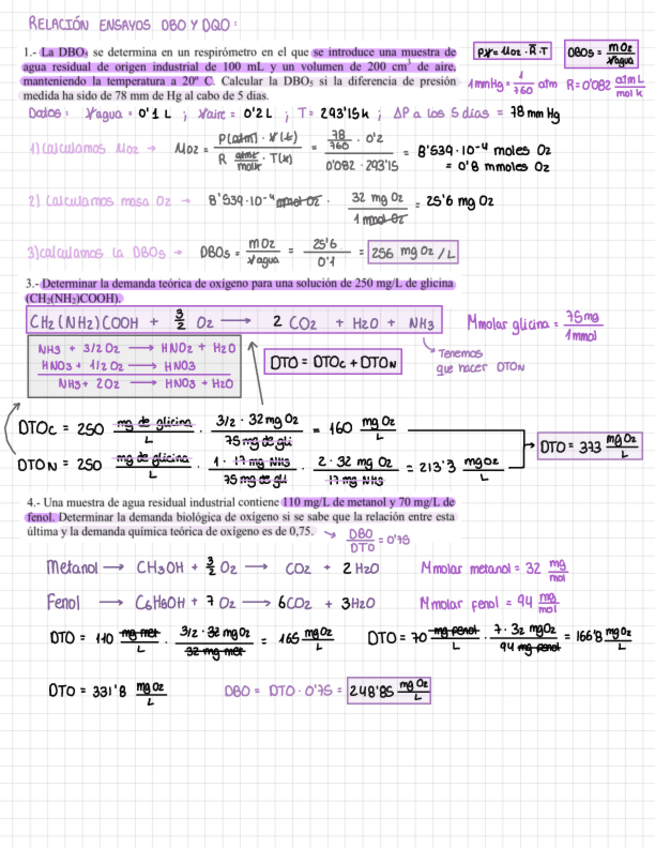 RELACIÓN ENSAYOS DBO Y DQO:
1.- La DBO₅ se determina en un respirómetro en el que se introduce una muestra de
agua residual de origen industrial de 100 mL y un volumen de 200 cm³ de aire,
manteniendo la temperatura a 20º C. Calcular la DBO₅ si la diferencia de presión
medida ha sido de 78 mm de Hg al cabo de 5 días.
P.V = Mo2 · R · T
DBO5 = mO2 / Vagua
1mmHg = 1/760 atm R = 0'082 atm L / mol k
Datos: Vagua = 0'1 L ; Vaire = 0'2 L ; T = 293'15k ; ΔP a los 5 días = 78 mm Hg
1) Calculamos MO2 → MO2 = P(atm) · V(L) / R atm L/mol k · T(k) = 78/760 · 0'2 / 0'082 · 293'15 = 8'539·10⁻⁴ moles O2
= 0'8 mmoles O2
2) Calculamos masa O2 → 8'539·10⁻⁴ mmol O2 · 32 mg O2 / 1 mmol O2 = 25'6 mg O2
3) calculamos la DBO5 → DBO5 = mO2 / Vagua = 25'6 / 0'1 = 256 mg O2 / L
3.- Determinar la demanda teórica de oxígeno para una solución de 250 mg/L de glicina
(CH₂(NH₂)COOH).
CH2(NH2)COOH + 3/2 O2 → 2 CO2 + H2O + NH3
Mmolar glicina = 75mg / 1mmol
NH3 + 3/2 O2 → HNO2 + H2O
HNO3 + 1/2 O2 → HNO3
NH3 + 2O2 → HNO3 + H2O
DTO = DTOC + DTON
Tenemos
que hacer DTON
DTOC = 250 mg de glicina / L · 3/2 · 32 mg O2 / 75 mg de gli = 160 mg O2 / L
DTON = 250 mg de glicina / L · 1 · 17 mg NH3 / 75 mg de gli · 2 · 32 mg O2 / 17 mg NH3 = 213'3 mg O2 / L
DTO = 373 mg O2 / L
4.- Una muestra de agua residual industrial contiene 110 mg/L de metanol y 70 mg/L de
fenol. Determinar la demanda biológica de oxígeno si se sabe que la relación entre esta
última y la demanda química teórica de oxígeno es de 0,75. → DBO / DTO = 0'75
Metanol → CH3OH + 3/2 O2 → CO2 + 2 H2O Mmolar metanol = 32 mg / mol
Fenol → C6H6OH + 7 O2 → 6CO2 + 3H2O Mmolar fenol = 94 mg / mol
DTO = 110 mg met / L · 3/2 · 32 mg O2 / 32 mg met = 165 mg O2 / L DTO = 70 mg fenol / L · 7 · 32 mg O2 / 94 mg fenol = 166'8 mg O2 / L
DTO = 331'8 mg O2 / L DBO = DTO · 0'75 = 248'85 mg O2 / L